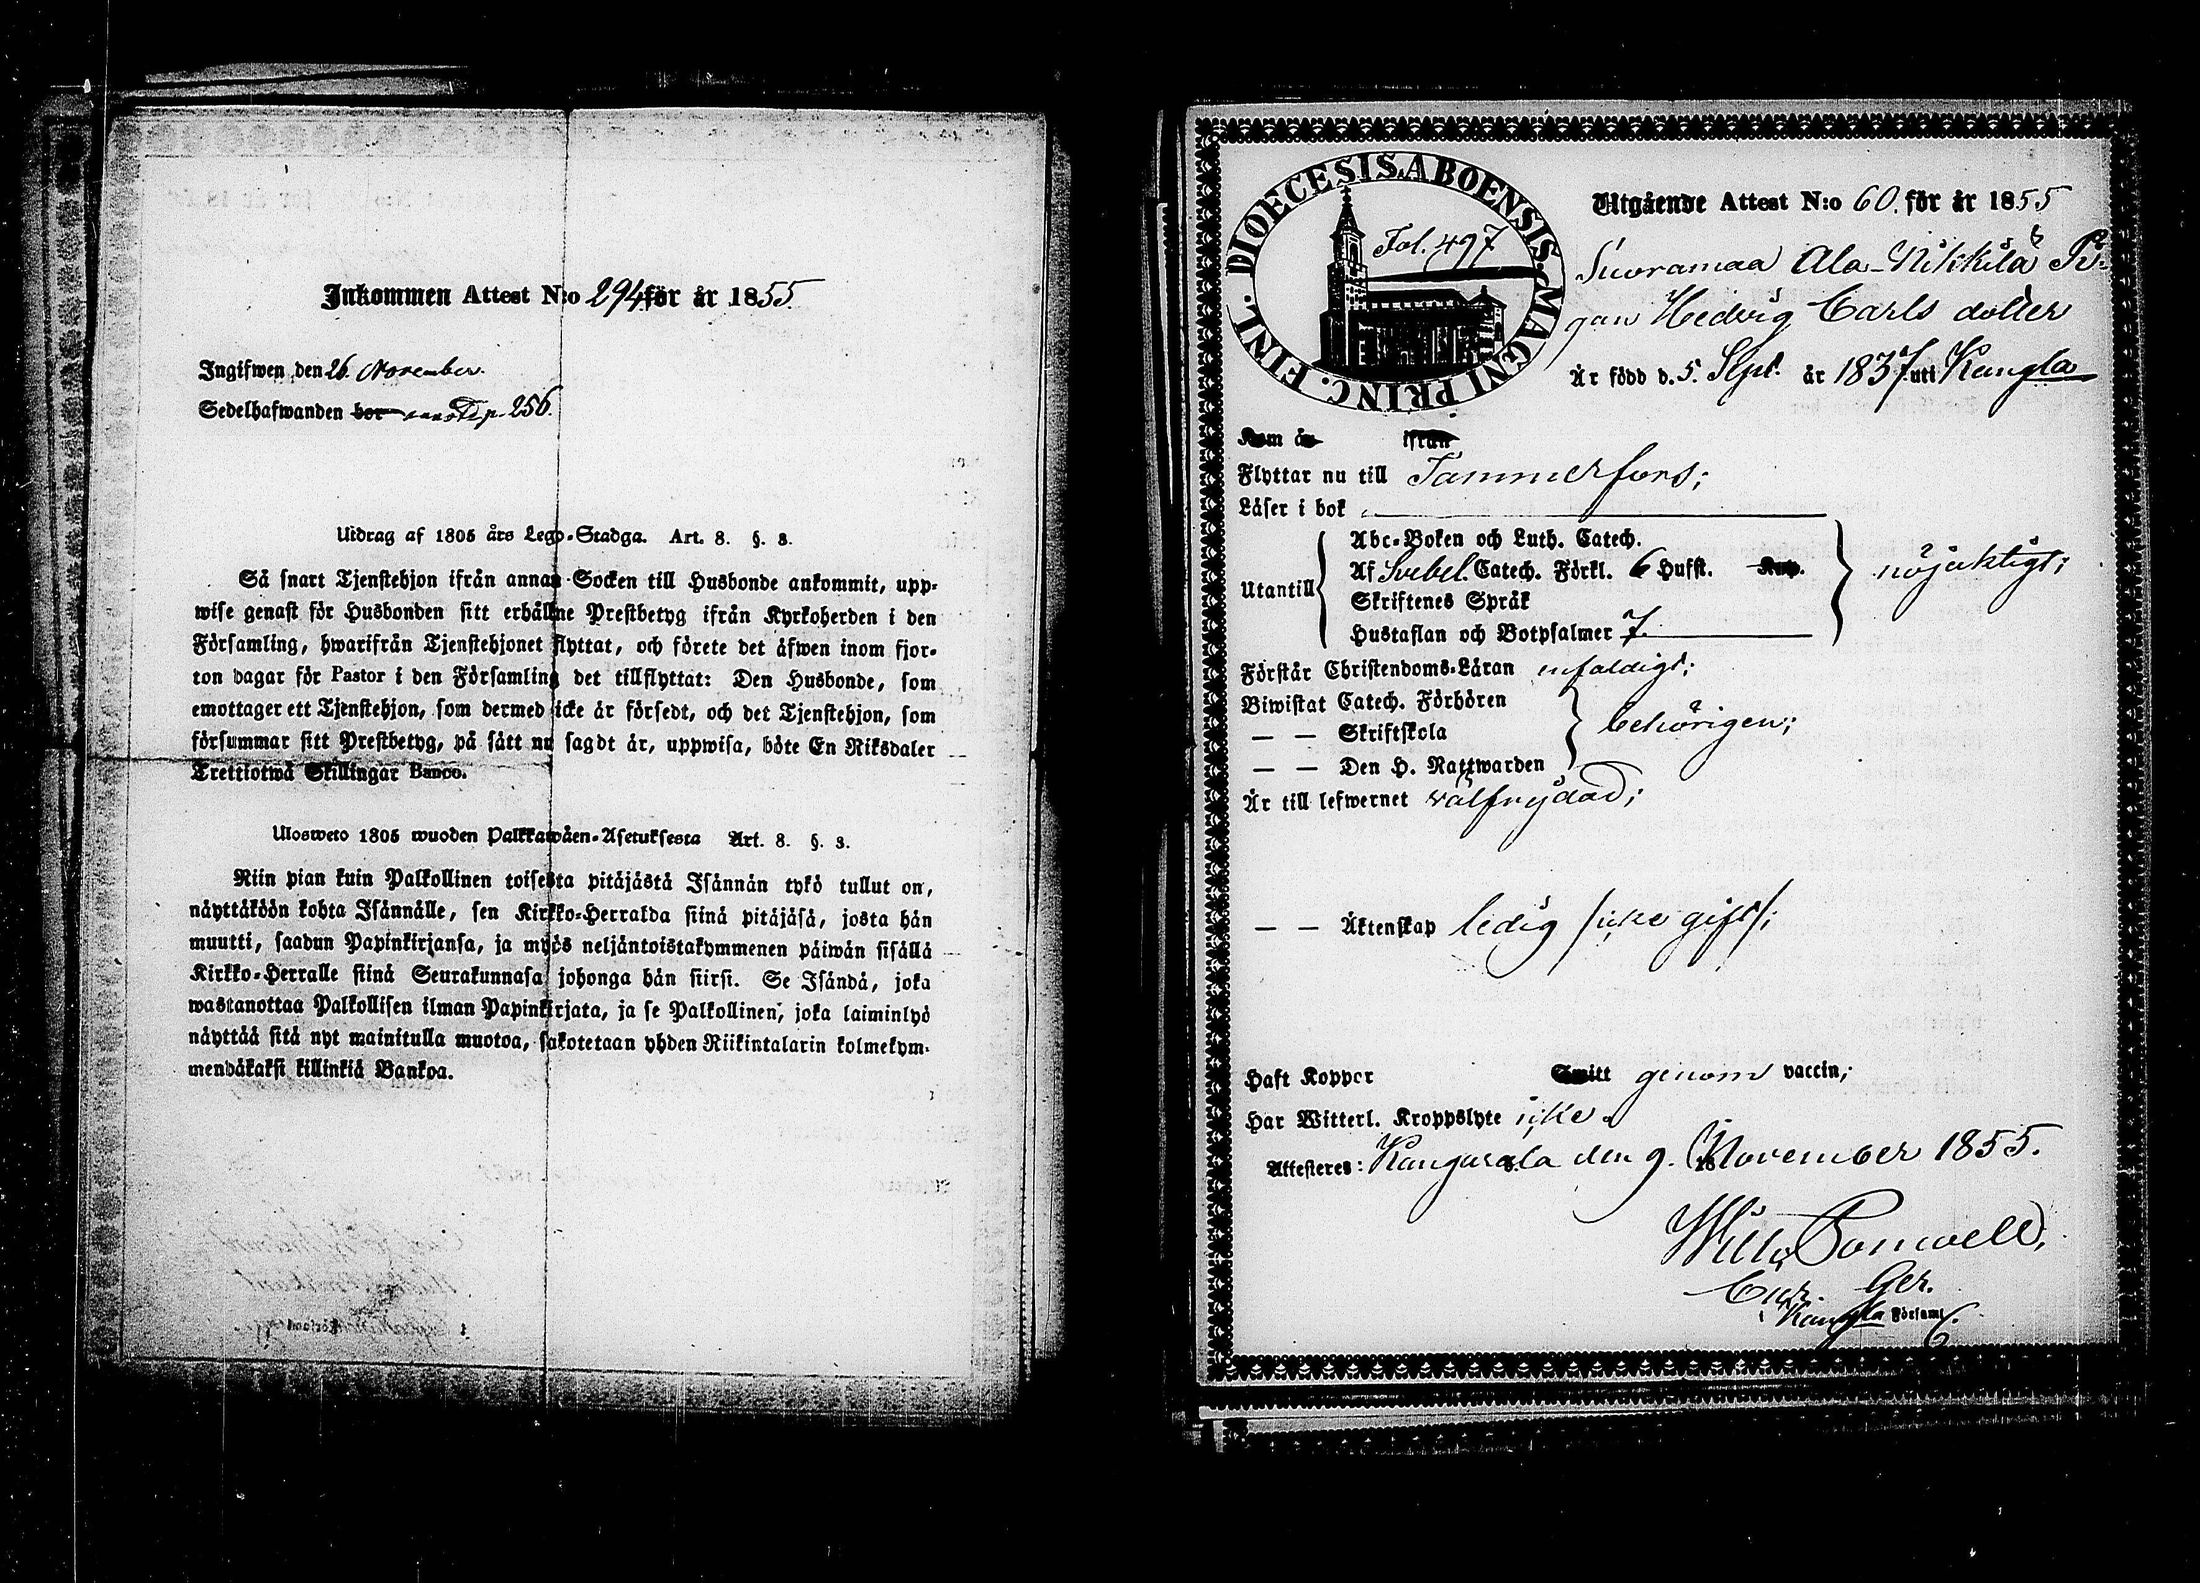 Inkommen Attest N:o 294 för år 1855.
Ingifwen den 26. November.
Sedelhafwanden bor p. 256.
Utdrag af 1805 års Lego-Stadga. Art. 8. §. 3.
Så snart Tjenstehjon ifrån annan Socken till Husbonde ankommit, upp-
wise genast för Husbonden sitt erhållne Prestbetyg ifrån Kyrkoherden i den
Församling, hwarifrån Tjenstehjonet flyttat, och förete det äfwen inom fjor-
ton dagar för Pastor i den Församling det tillflyttat: Den Husbonde, som
emottager ett Tjenstehjon, som dermed icke är försedt, och det Tjenstehjon, som
försummar sitt Prestbetyg, på sätt nu sagdt är, uppwisa, böte En Riksdaler
Trettiotwå Skillingar Banco.
Ulosweto 1805 wuoden Palkkawäen-Asetuksesta Art. 8. §. 3.
Niin pian kuin Palkollinen toisesta pitäjästä Isännän tykö tullut on,
näyttäköön kohta Isännälle, sen Kirkko-Herralda siinä pitäjäsä, josta hän
muutti, saadun Papinkirjansa, ja myös neljäntoistakymmenen päiwän sisällä
Kirkko-Herralle siinä Seurakunnasa johonga hän siirsi. Se Isändä, joka
wastanottaa Palkollisen ilman Papinkirjata, ja se Palkollinen, joka laiminlyö
näyttää sitä nyt mainitulla muotoa, sakotetaan yhden Riikintalarin kolmekym-
mendäkaksi killinkiä Bankoa.
DIOECESIS ABOENSIS. MAGNI PRINC. FINL.
Fol. 497
Utgående Attest N:o 60. för år 1855
Suoramaa Ala-Nikkilä Pi-
gan Hedvig Carls dotter
Är född d. 5. Sept. år 1837 uti Kangla
Kom år ifrån
Flyttar nu till Tammerfors;
Läser i bok
Utantill
Abc-Boken och Luth. Catech.
Af Svebel. Catech. Förkl. 6 Hufst. Kap.
Skriftenes Språk
Hustaflan och Botpsalmer 7.
nöjaktigt;
Förstår Christendoms-Läran enfaldigt;
Biwistat Catech. Förhören
— — Skriftskola
— — Den H. Nattwarden
behörigen;
Är till lefwernet välfrejdad;
— — Äktenskap ledig /icke gift/;
Haft Koppor Smitt genom vaccin;
Har Witterl. Kroppslyte icke.
Attesteres: Kangasala den 9. November 1855.
Wilh. Ponwell
Cur. Ger.
i Kangla Församl.